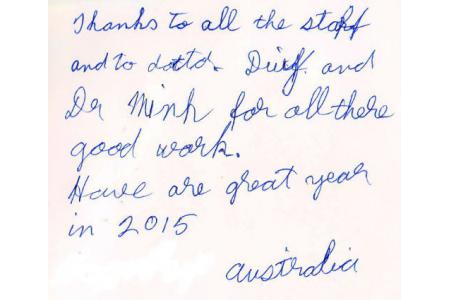 Thanks to all the staff
and to dottd. Duf. and
Dr Minh for all there
good work.
Have are great year
in 2015
australia